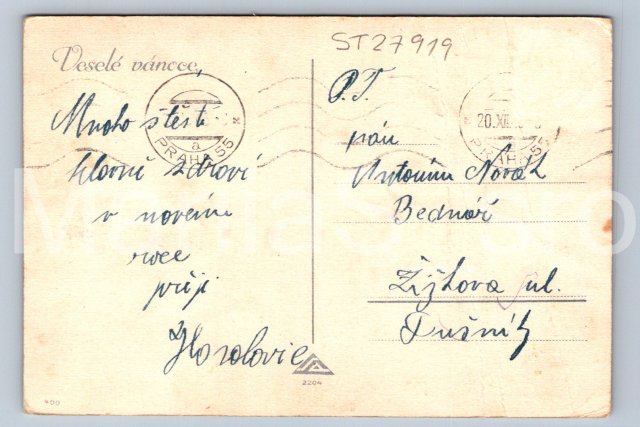 ST27919
Veselé vánoce
P.T.
Mnoho štěstí
hlavně zdraví
v novém
roce
přejí
pán
Antonín Novák
Bednář
Žižkova ul.
Dušníky
PRAHA 55
a
20.XII
PRAHA 55
2204